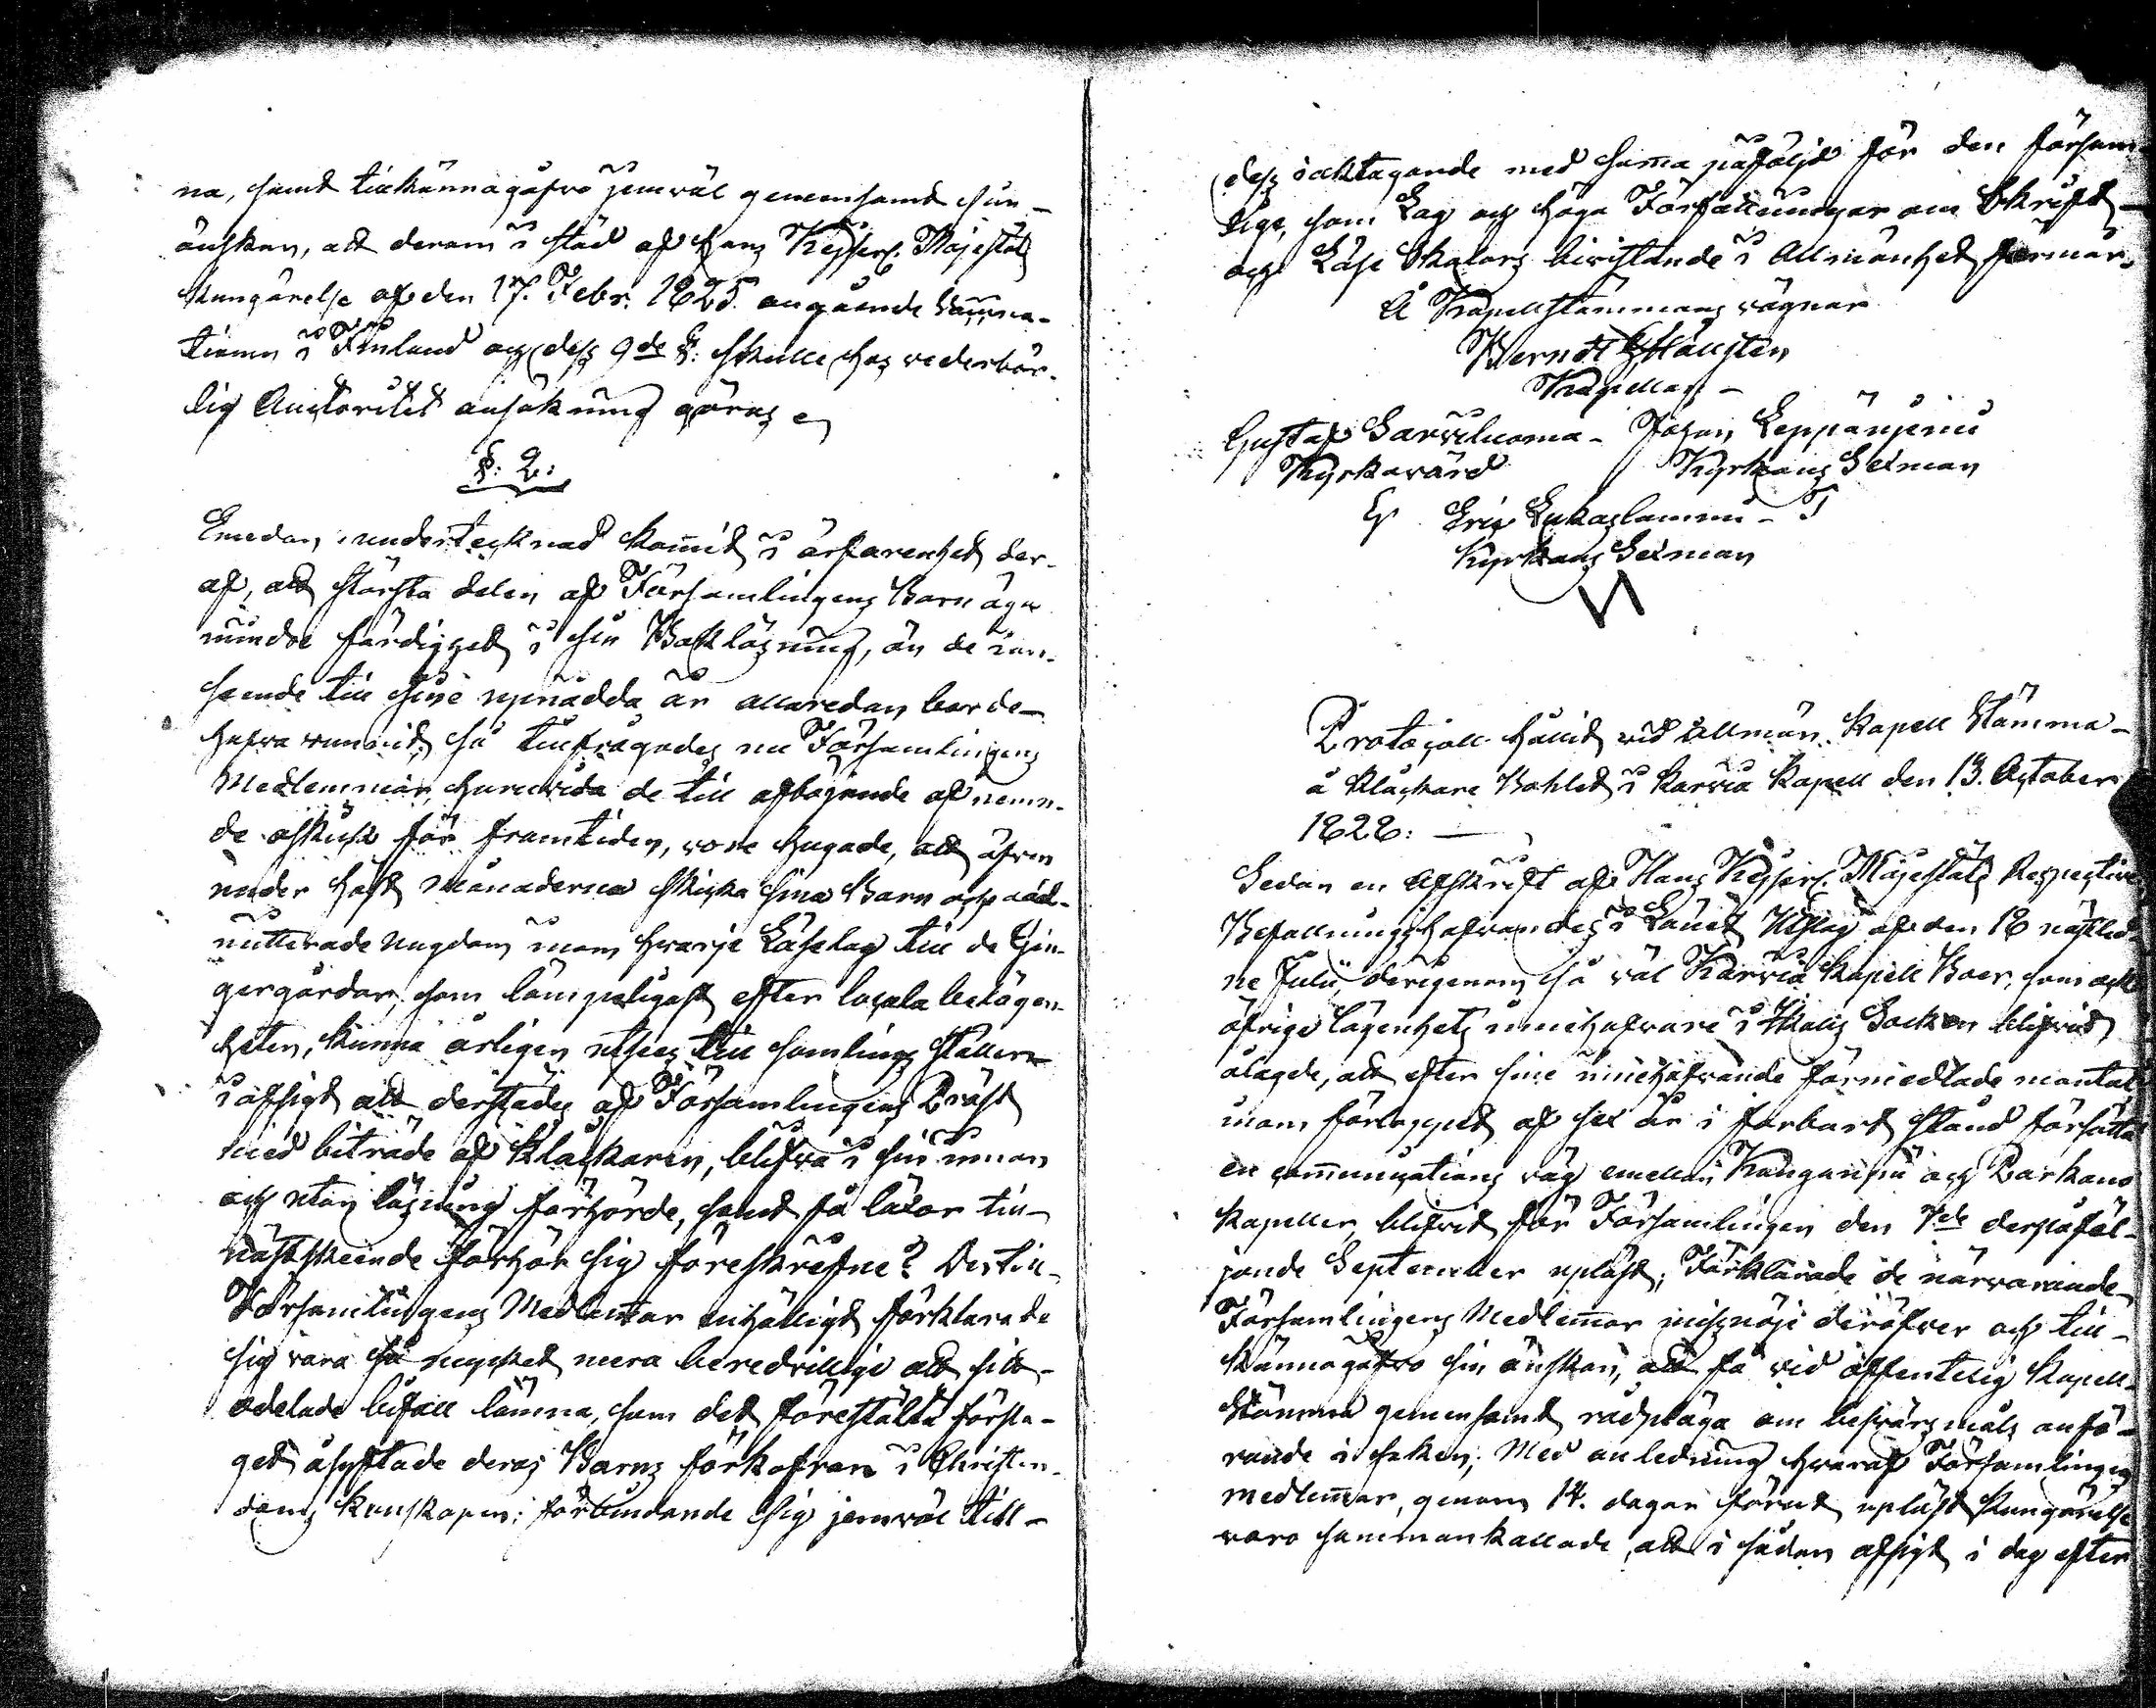 na, samt tilkännagåfvo jemväl gemensamt sin
önskan, att derom i stöd af Hans Kejserl. Majestäts
Kungörelse af den 17. Febr. 1825. angående Vaccina-
tionen i Finland och dess 9de §: skulle hos vederbör-
lig Auctoritet ansökning göras
§. 2:
Emedan undertecknad kom̄it i ärfarenhet der-
af, att största delen af Församlingens Barn äga
mindre färdighet i sin Bokläsning, än de i an-
seende till sine upnådda år allaredan borde
hafva vunnit, så tillfrågades nu Församlingens
Medlemmar, huruvida de till afböjande af nemn-
de oskick för framtiden, voro hugade, att äfven
under Höst månaderna skicka sina Barn och oad-
mitterade Ungdom inom hvarje Läselag till de Gin-
gergårdar, som lämpeligast efter locala belägen-
heten, kunna årligen utses till samlings ställen
i afsigt att derstädes af Församlingens Präst
med biträde af Klockaren, blifva i sin innan
och utan läsning förhörde, samt få läxor till
nästskeende förhör sig föreskrefne? Dertill
Församlingens Medlem̄ar enhälligt förklarade
sig vara så mycket mera beredvillige att sitt
odelade bifall lämna, som det föreställda försla-
get åsyftade deras Barns förkofran i Christen-
doms kunskapen; förbindande sig jemväl till
dess iaktagande med sam̄a påföljd för den försum-
lige, som Lag och höga Författningar om Skrift-
och Läse Skolors bivistande i Allmänhet förmår.
Å Kapellstämmans vägnar
Berndt Hällsten
Kapellan
Gustaf Sarveluoma Johan Leppänjemi
Kyrkovärd Kyrkans Sexman
Eric Lukaslammi
Kyrkans Sexman
Protocoll hållit vid allmän Kapell Stämma
å Klockare Bohlet i Karvia Kapell den 13. October
1828:
Sedan en Afskrift af Hans Kejserl. Majestäts Respective
Befallningshafvandes i Länet Utslag af den 18 nästled-
ne Julii, derigenom så väl Karvia Kapell Boer, som ock
öfrige lägenhets innehafvare i Ikalis Socken blifvit
ålagde, att efter sine innehafvande förmedlade mantal
inom förloppet af sex år i farbart stånd försätta
en com̄unications väg emellan Kangaspää och Parkano
Kapeller, blifvit för Församlingen den 7de derpåföl-
jande September upläst; Förklarade de närvarande
Församlingens Medlem̄ar missnöje deröfver och till-
kännagåfvo sin önskan, att få vid offentelig Kapell
Stämma gemensamt rådpläga om besvärs måls anfö-
rande i saken; Med anledning hvaraf Församlingens
medlem̄ar, genom 14. dagar förut upläst Kungörelse
voro sammankallade, att i sådan afsigt i dag efter